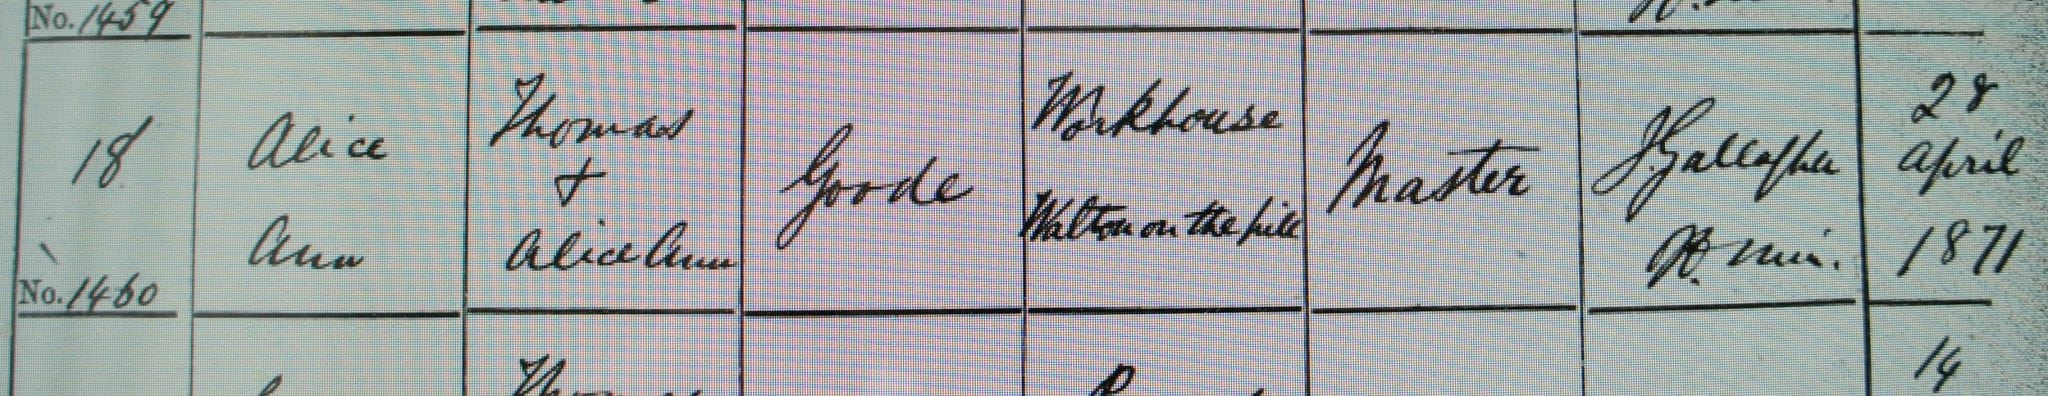 No. 1459
18 Alice Ann Thomas & Alice Ann Goode Workhouse Walton on the hill Master J Gallagher Off. min. 28 April 1871
No. 1460
14